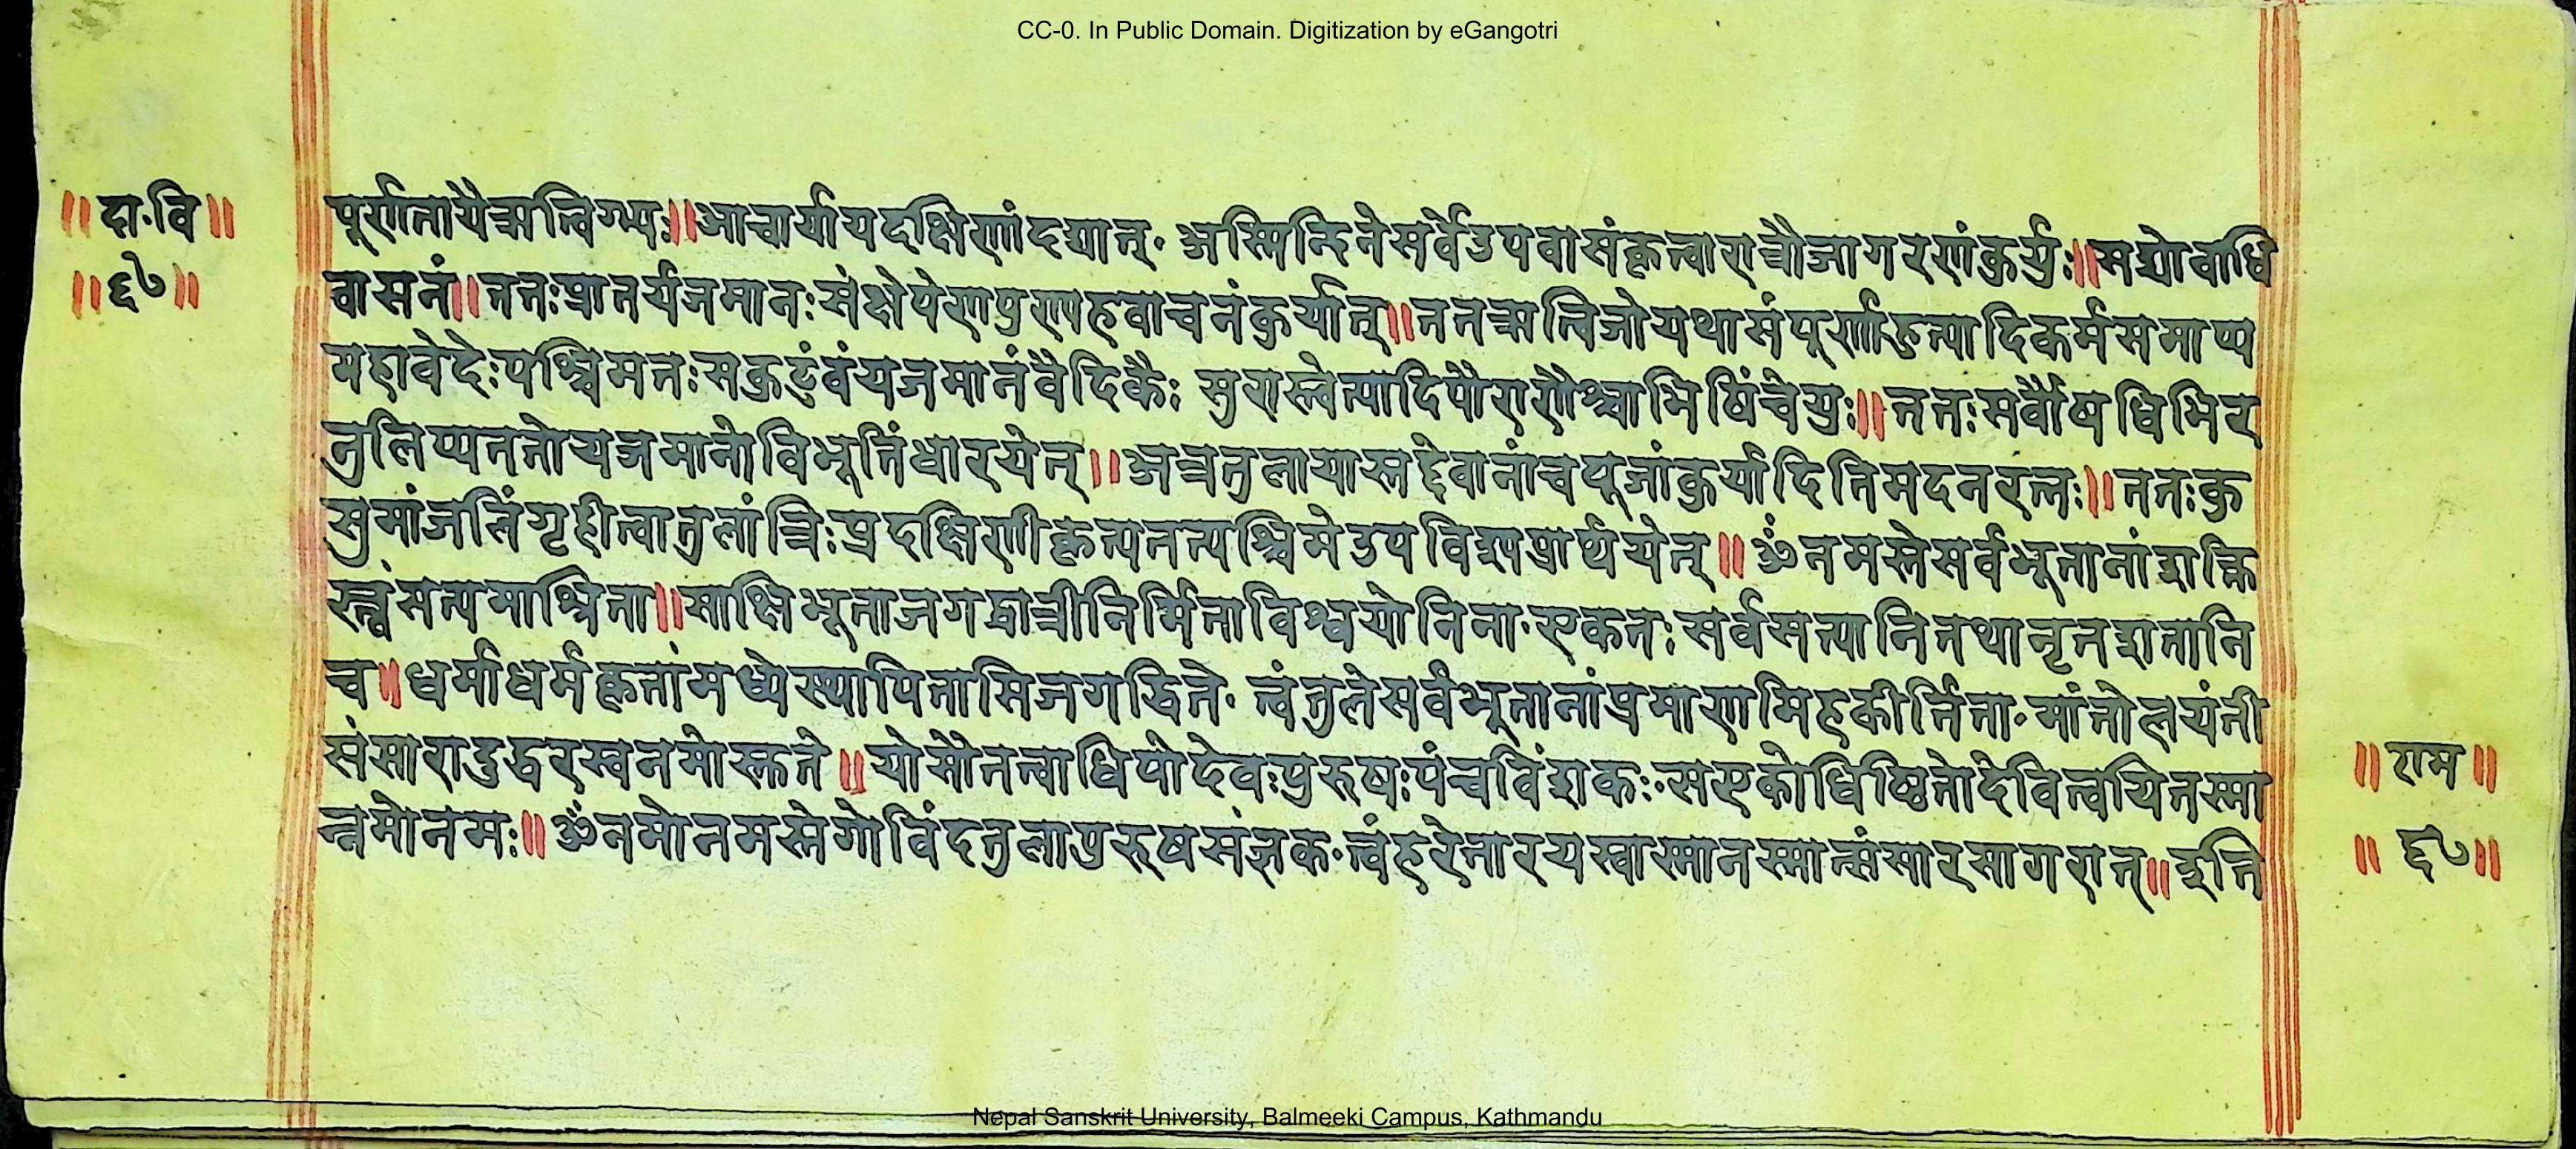 CC-0. In Public Domain. Digitization by eGangotri
॥दा·वि॥
॥६७॥
पूर्णतायैऋत्विग्भ्यः॥आचार्यायदक्षिणांदद्यात्· अस्मिन्दिनेसर्वेउपवासंकृत्वारात्रौजागरणंकुर्युः॥सद्योवाधि
वासनं॥ततःप्रातर्यजमानःसंक्षेपेणपुण्यहवाचनंकुर्यात्॥ततऋत्विजोयथासंपूर्णाहुत्यादिकर्मसमाप्य
महावेदेःपश्चिमतःसकुटुंवंयजमानंवैदिकैः सुरास्त्वेत्यादिपौराणैश्चाभिषिंचेयुः॥ततःसर्वौषधिभिर
नुलिप्यततोयजमानोविभूतिंधारयेत्॥अत्रतुलायास्तद्देवानांचपूजांकुर्यादितिमदनरत्नः॥ततःकु
सुमांजलिंगृहीत्वातुलांत्रिःप्रदक्षिणीकृत्यतत्पश्चिमेउपविश्यप्रार्थयेत्॥ॐनमस्तेसर्वभूतानांशक्ति
स्त्वंसत्यमाश्रिता॥साक्षिभूताजगद्धात्रीनिर्मिताविश्वयोनिना·एकतःसर्वसत्यानितथानृतशतानि
च॥धर्माधर्मकृतांमध्येस्थापितासिजगद्धिते· त्वंतुलेसर्वभूतानांप्रमाणमिहकीर्तिता·मांतोलयंती
संसारादुद्धरस्वनमोस्तुते॥योसौतत्वाधिपोदेवःपुरुषःपंचविंशकः·सएकोधिष्ठितोदेवित्वयितस्मा
न्नमोनमः॥ॐनमोनमस्तेगोविंदतुलापुरुषसंज्ञक·त्वंहरेतारयस्वास्मानस्मात्संसारसागरात्॥इति
॥राम॥
॥६७॥
Nepal Sanskrit University, Balmeeki Campus, Kathmandu